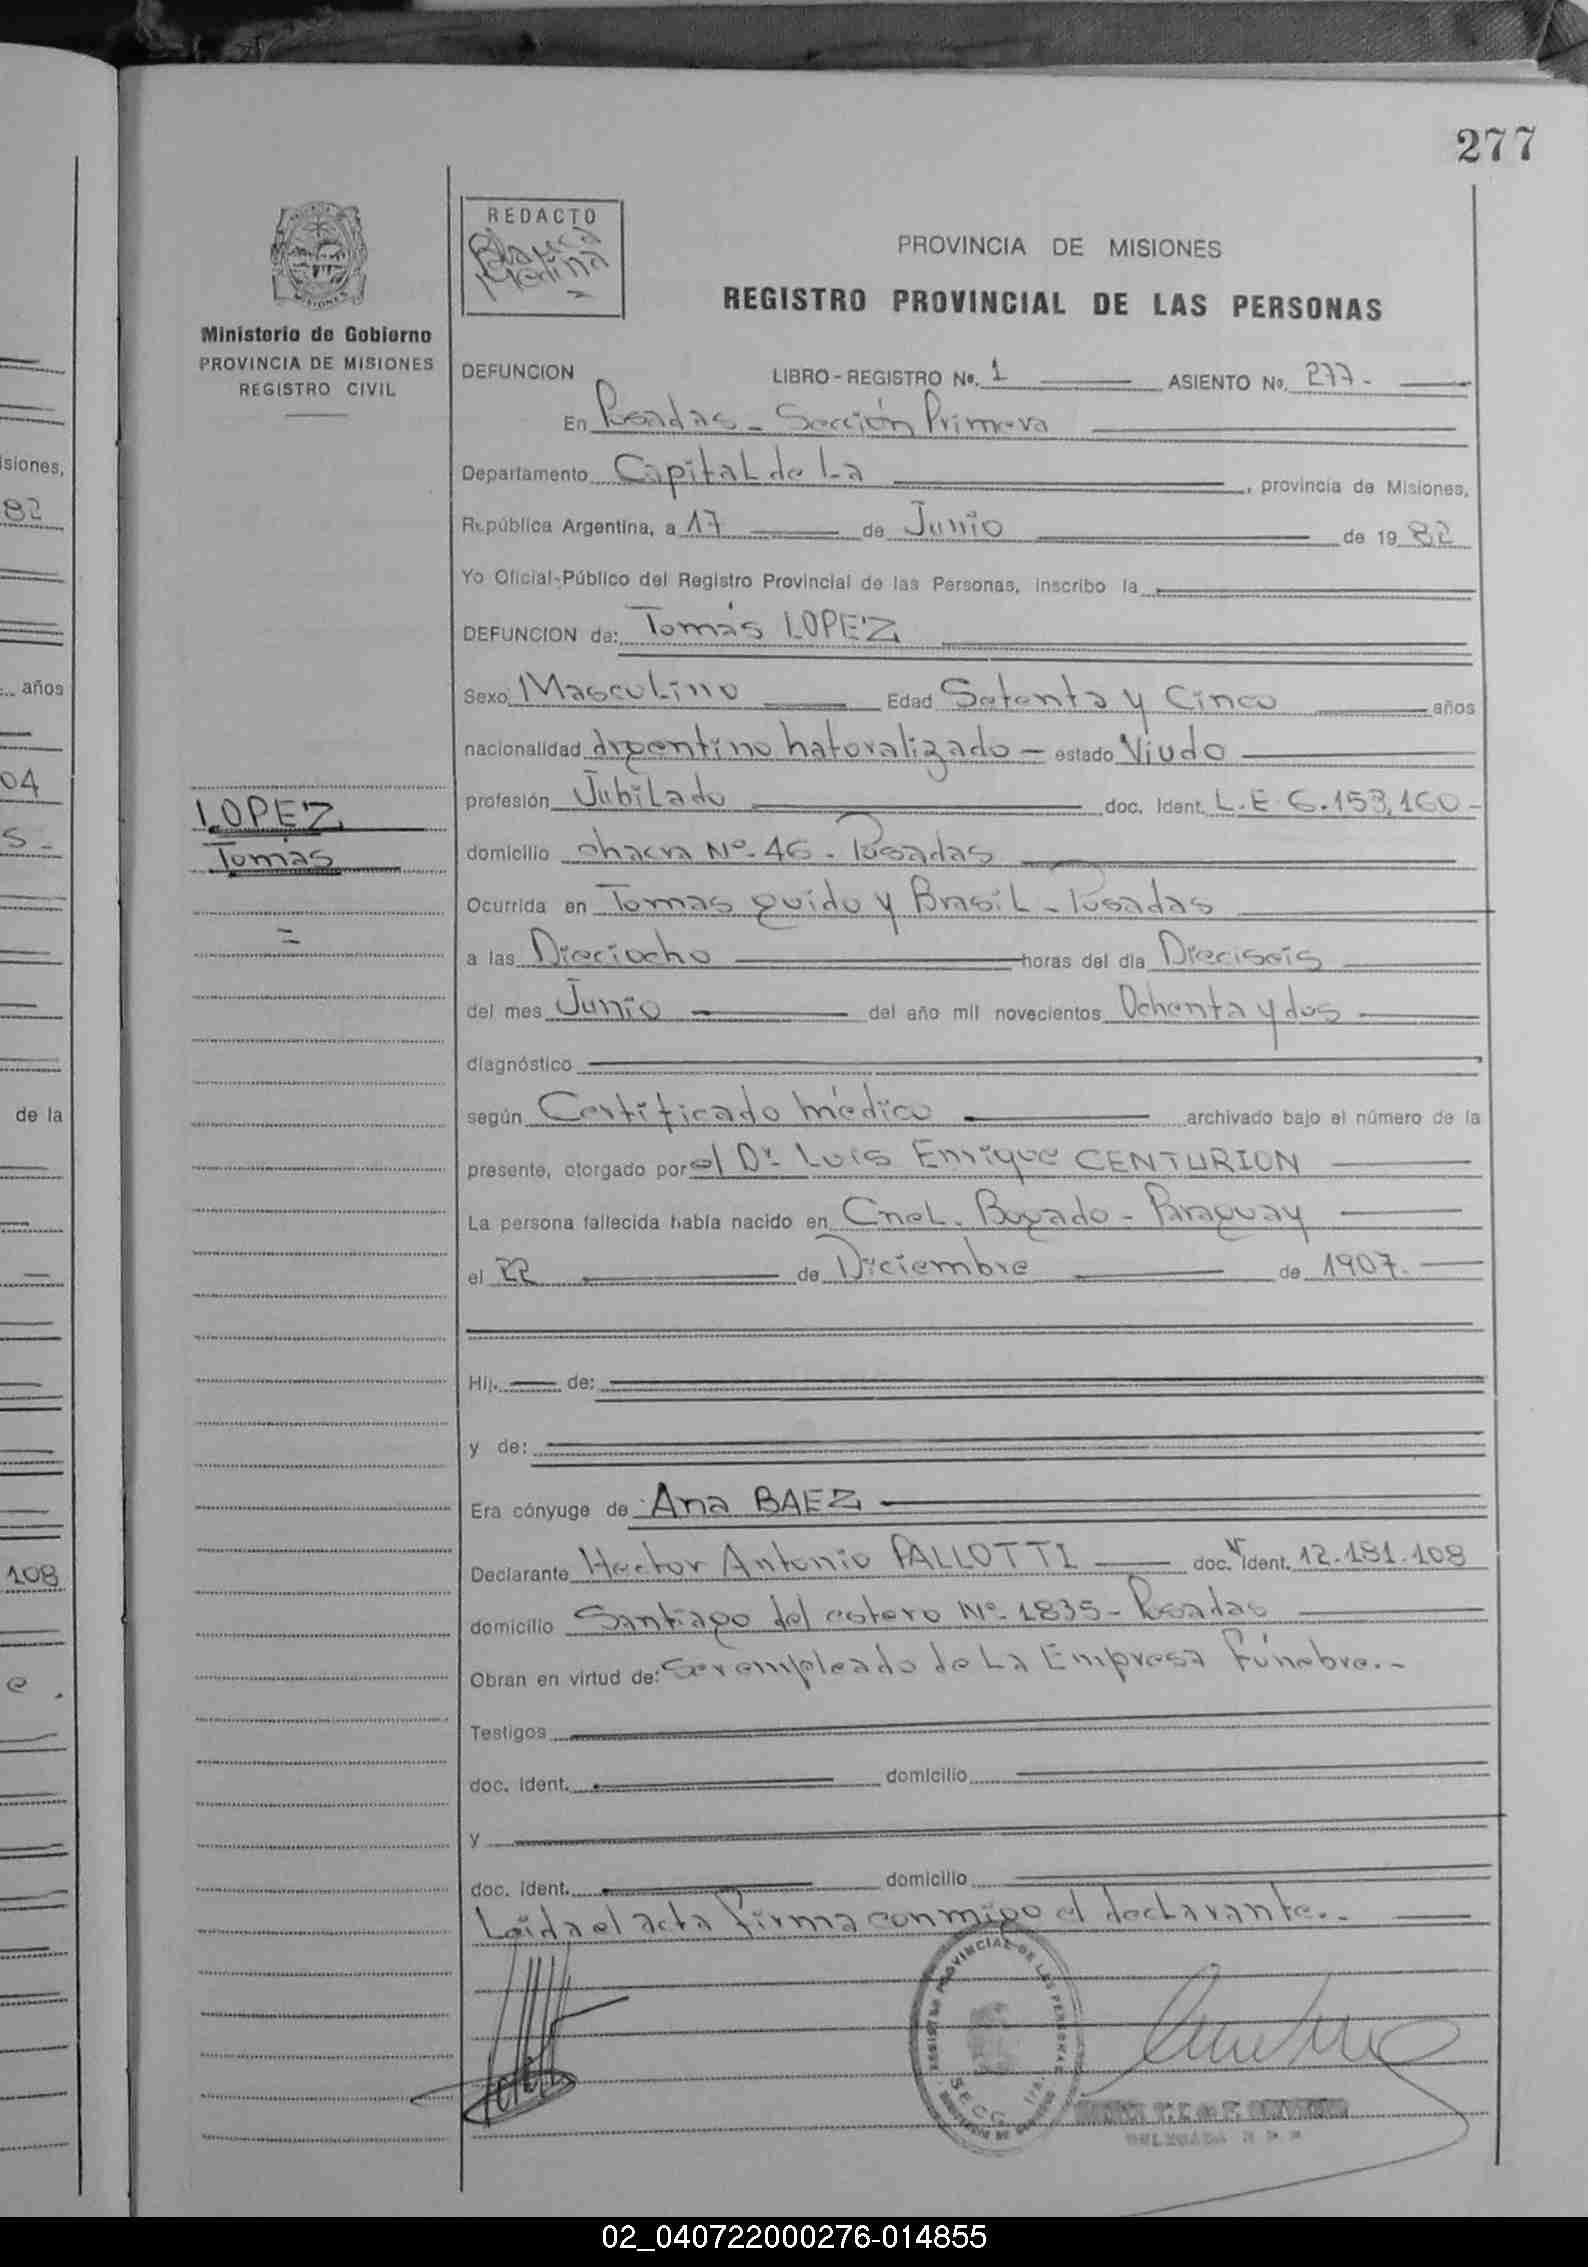 277
REDACTO
Blanca
Medina
PROVINCIA DE MISIONES
REGISTRO PROVINCIAL DE LAS PERSONAS
Ministerio de Gobierno
PROVINCIA DE MISIONES
REGISTRO CIVIL
DEFUNCION LIBRO-REGISTRO Nº. 1 ASIENTO Nº. 277.-
En Posadas - Sección Primera
Departamento Capital de La , provincia de Misiones,
República Argentina, a 17 de Junio de 1982
Yo Oficial-Público del Registro Provincial de las Personas, inscribo la
DEFUNCION de: Tomás LOPEZ
Sexo Masculino Edad Setenta y Cinco años
nacionalidad Argentino naturalizado - estado Viudo
profesión Jubilado doc. Ident. L.E 6.153.160-
domicilio chacra Nº. 46 - Posadas
Ocurrida en Tomas guido y Brasil - Posadas
a las Dieciocho horas del día Dieciseis
del mes Junio del año mil novecientos Ochenta y dos
diagnóstico
según Certificado médico archivado bajo el número de la
presente, otorgado por el Dr. Luis Enrique CENTURION
La persona fallecida había nacido en Cnel. Bogado - Paraguay
el 22 de Diciembre de 1907.
Hij. de:
y de:
Era cónyuge de Ana BAEZ
Declarante Hector Antonio PALLOTTI doc. Ident. 12.181.108
domicilio Santiago del estero Nº. 1835 - Posadas
Obran en virtud de: Ser empleado de La Empresa fúnebre.-
Testigos
doc. ident. domicilio
y
doc. ident. domicilio
Leida el acta firma conmigo el declarante.-
LOPEZ
Tomás
REGISTRO PROVINCIAL DE LAS PERSONAS
isiones,
82
años
04
S-
de la
108
e.
02_040722000276-014855